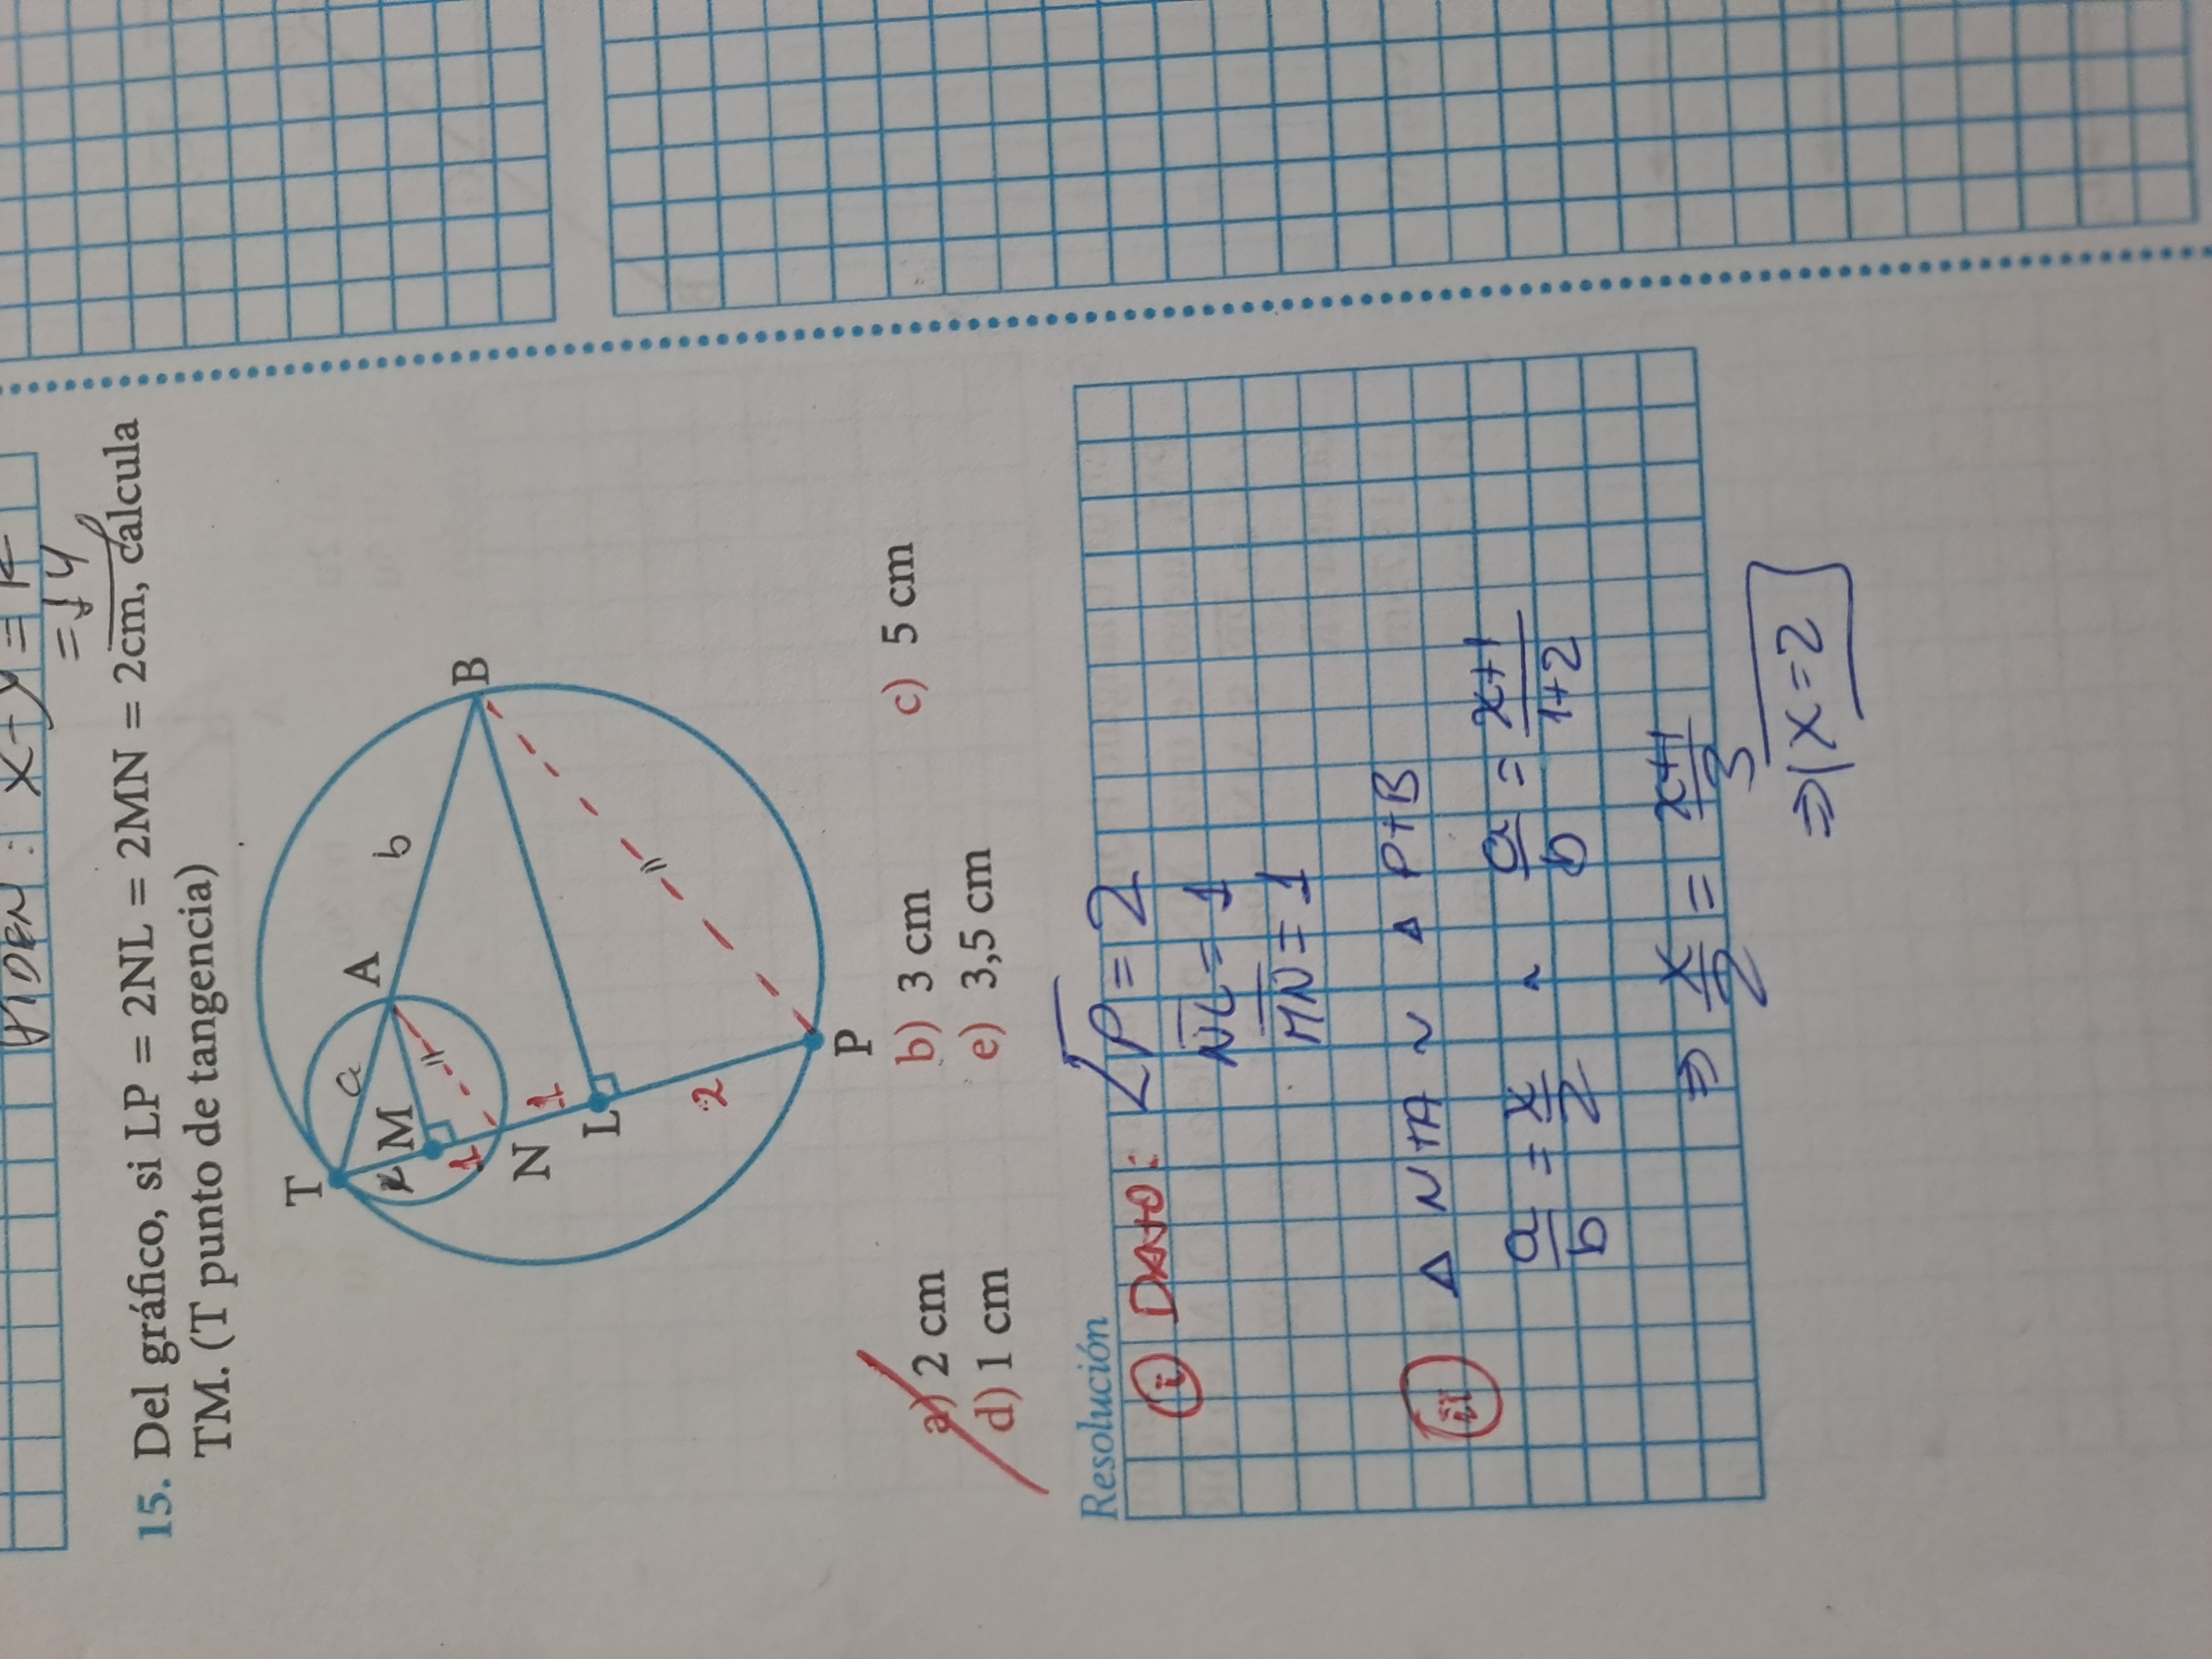 PIDEN: x-y=
=14
15. Del gráfico, si LP = 2NL = 2MN = 2cm, calcula
TM. (T punto de tangencia)
T
a
A
x M
b
1
B
N 1
L
2
P
a) 2 cm b) 3 cm c) 5 cm
d) 1 cm e) 3,5 cm
Resolución
i DATO: LP = 2
NL = 1
MN = 1
ii Δ NTA ~ Δ PTB
a/b = x/2 ~ a/b = x+1/1+2
⇒ x/2 = x+1/3
⇒ x=2